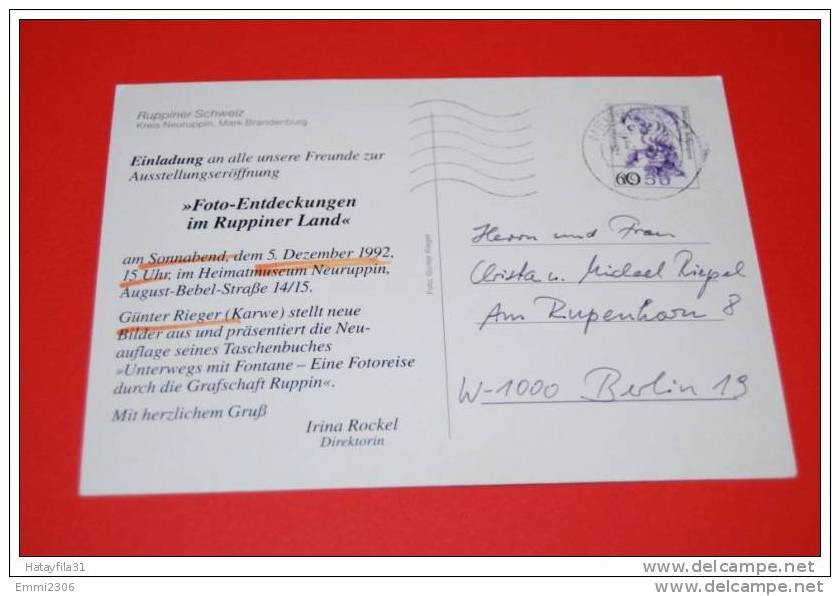 Ruppiner Schweiz
Kreis Neuruppin, Mark Brandenburg
Einladung an alle unsere Freunde zur
Ausstellungseröffnung
»Foto-Entdeckungen
im Ruppiner Land«
am Sonnabend, dem 5. Dezember 1992,
15 Uhr, im Heimatmuseum Neuruppin,
August-Bebel-Straße 14/15.
Günter Rieger (Karwe) stellt neue
Bilder aus und präsentiert die Neu-
auflage seines Taschenbuches
»Unterwegs mit Fontane – Eine Fotoreise
durch die Grafschaft Ruppin«.
Mit herzlichem Gruß
Irina Rockel
Direktorin
Foto: Günter Rieger
60
Herrn und Frau
Christa u. Michael
Am Rupenhorn 8
W-1000 Berlin 19
Hatayfila31
www.delcampe.net
Emmi2306
www.delcampe.net